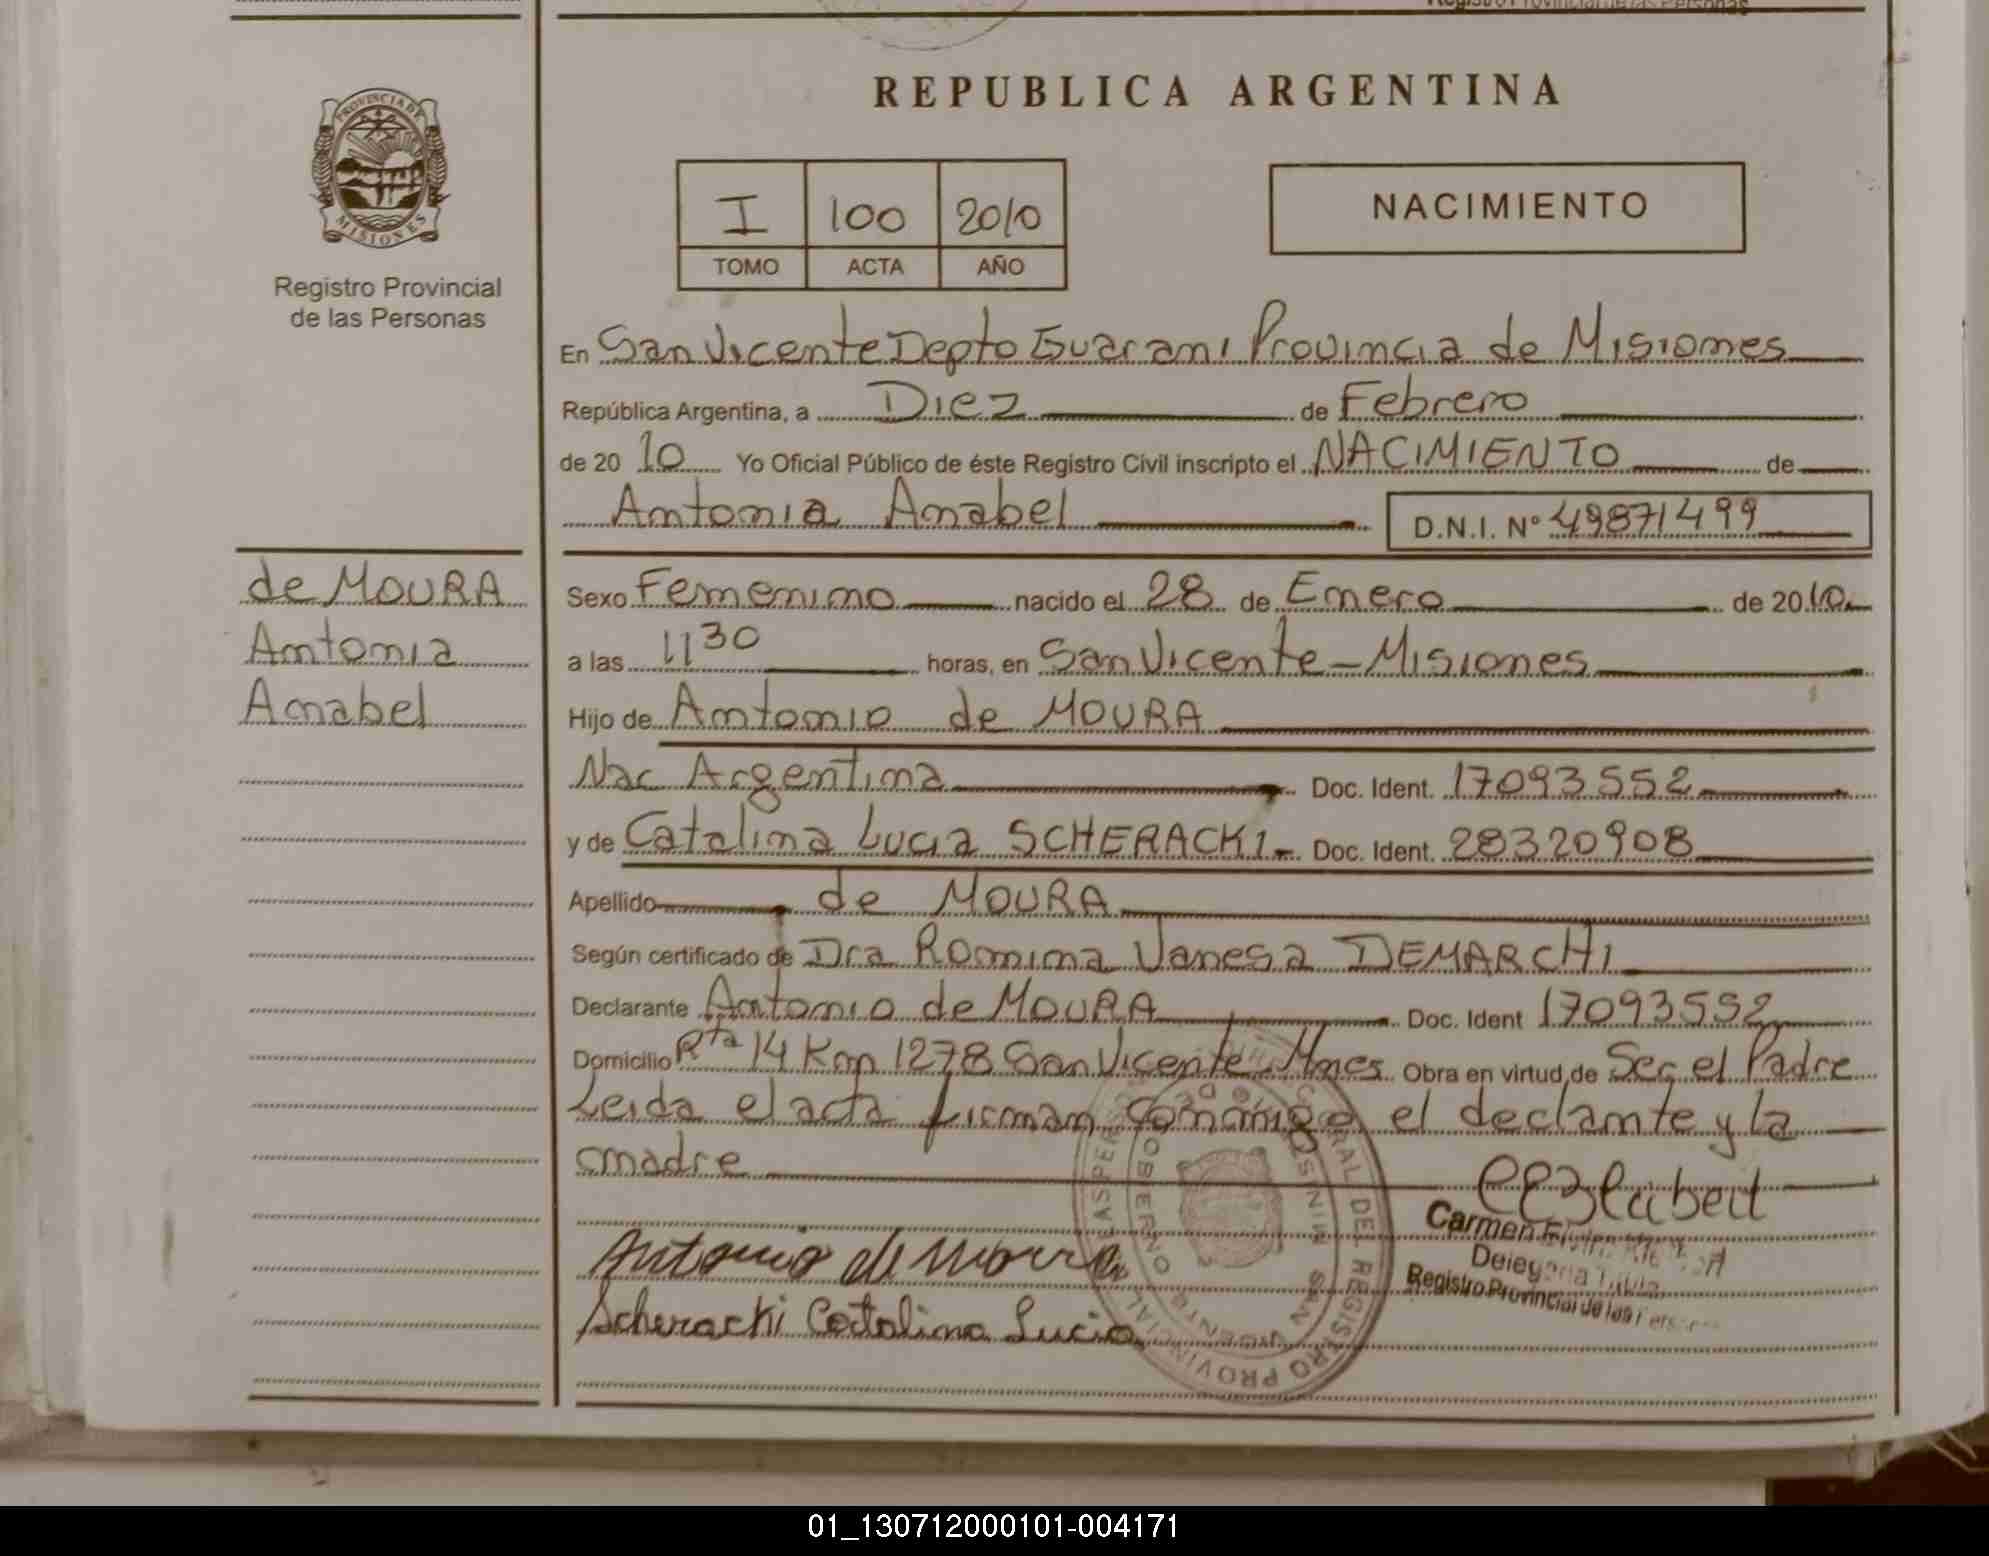 REPUBLICA ARGENTINA
PROVINCIA DE
MISIONES
Registro Provincial
de las Personas
I 100 2010
TOMO ACTA AÑO
NACIMIENTO
En San Vicente Depto Guarani Provincia de Misiones
República Argentina, a Diez de Febrero
de 20 10 Yo Oficial Público de éste Registro Civil inscripto el NACIMIENTO de
Antonia Anabel D.N.I. Nº 49871499
de MOURA
Antonia
Anabel
Sexo Femenino nacido el 28 de Enero de 2010
a las 11 30 horas, en San Vicente - Misiones
Hijo de Antonio de MOURA
Nac Argentina Doc. Ident. 17093552
y de Catalina Lucia SCHERACKI - Doc. Ident. 28320908
Apellido de MOURA
Según certificado de Dra Romina Vanesa DEMARCHI
Declarante Antonio de MOURA Doc. Ident 17093552
Domicilio Rta 14 Km 1278 San Vicente Mnes Obra en virtud de Ser el Padre
Leida el acta firman conmigo el declante y la
madre
Carmen
Registro Provincial de las
Antonio de Moura
Scheracki Catalina Lucia
REGISTRO PROVINCIAL
GOBIERNO
SAN VICENTE
01_130712000101-004171